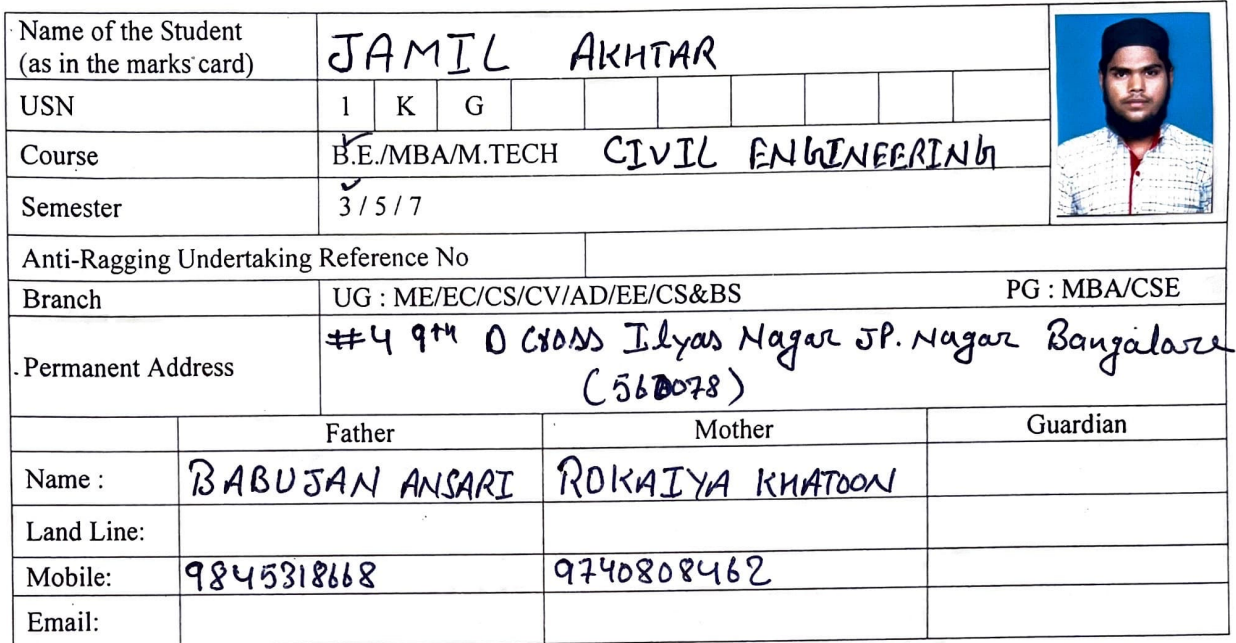 Name of the Student
(as in the marks card) JAMIL AKHTAR
USN 1 K G
Course B.E./MBA/M.TECH CIVIL ENGINEERING
Semester 3 / 5 / 7
Anti-Ragging Undertaking Reference No
Branch UG : ME/EC/CS/CV/AD/EE/CS&BS PG : MBA/CSE
Permanent Address #4 9th D Cross Ilyas Nagar JP. Nagar Bangalore
(560078)
Father Mother Guardian
Name : BABUJAN ANSARI ROKAIYA KHATOON
Land Line:
Mobile: 9845318668 9740808462
Email: